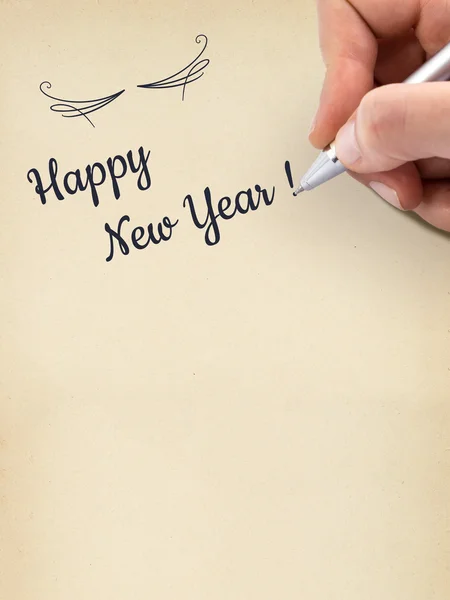 Happy
New Year !